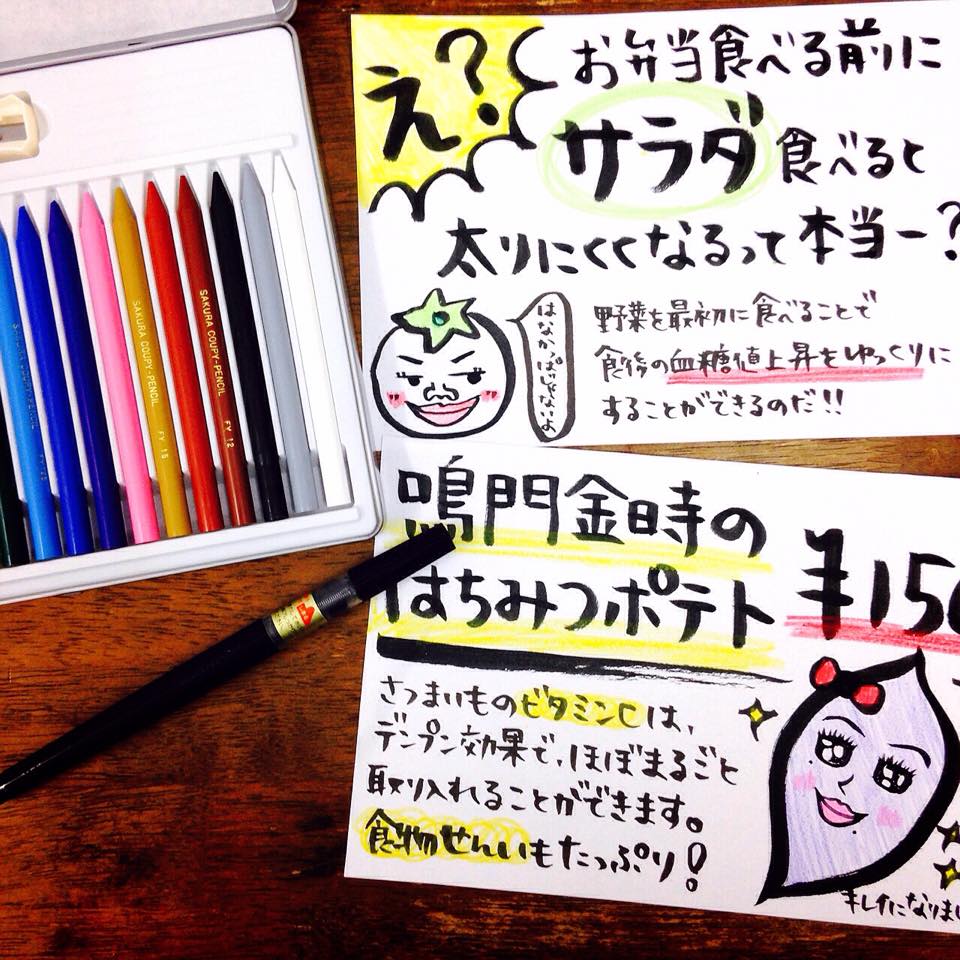 え?
お弁当食べる前に
サラダ食べると
太りにくくなるって本当ー?
はなかっぱじゃないよ
野菜を最初に食べることで
食後の血糖値上昇をゆっくりに
することができるのだ!!
鳴門金時の
はちみつポテト
¥150
さつまいものビタミンCは、
デンプン効果で、ほぼまるごと
取り入れることができます。
食物せんいもたっぷり!
キレイになりまし
SAKURA COUPY-PENCIL FY 15
SAKURA COUPY-PENCIL FY 12